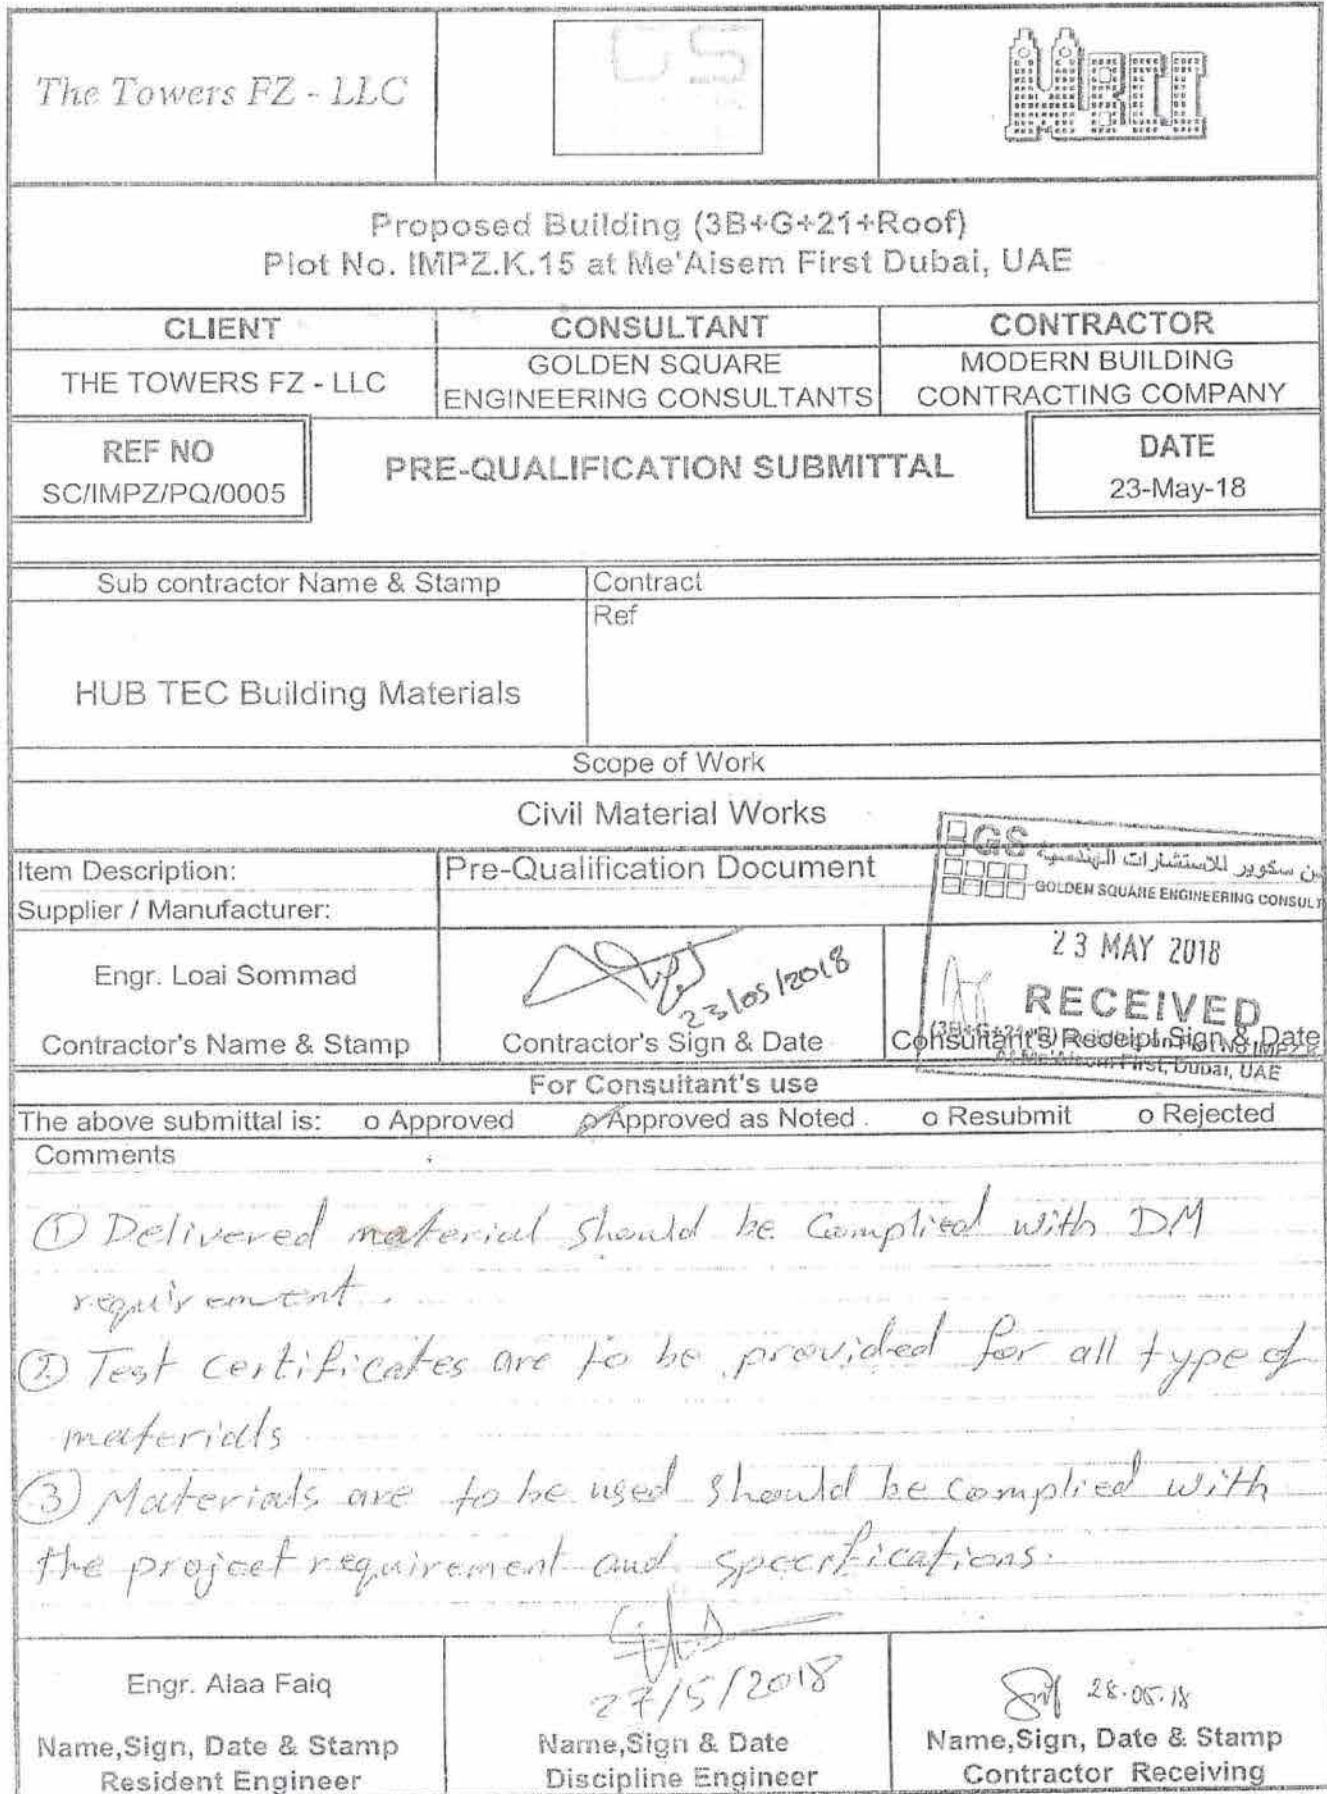 The Towers FZ - LLC
GS
MBCC
Proposed Building (3B+G+21+Roof)
Plot No. IMPZ.K.15 at Me'Aisem First Dubai, UAE
CLIENT
CONSULTANT
CONTRACTOR
THE TOWERS FZ - LLC
GOLDEN SQUARE
ENGINEERING CONSULTANTS
MODERN BUILDING
CONTRACTING COMPANY
REF NO
SC/IMPZ/PQ/0005
PRE-QUALIFICATION SUBMITTAL
DATE
23-May-18
Sub contractor Name & Stamp
Contract
Ref
HUB TEC Building Materials
Scope of Work
Civil Material Works
Item Description:
Pre-Qualification Document
Supplier / Manufacturer:
GS
ن سكوير للاستشارات الهندسية
GOLDEN SQUARE ENGINEERING CONSULT
23 MAY 2018
RECEIVED
At Me'Aisem First, Dubai, UAE
Engr. Loai Sommad
23/05/2018
Contractor's Name & Stamp
Contractor's Sign & Date
Consultant's Receipt Sign & Date
For Consultant's use
The above submittal is: o Approved o Approved as Noted o Resubmit o Rejected
Comments
① Delivered material should be Complied with DM
requirement.
② Test certificates are to be provided for all type of
materials
③ Materials are to be used should be complied with
the project requirement and specifications.
Engr. Alaa Faiq
27/5/2018
28.05.18
Name,Sign, Date & Stamp
Resident Engineer
Name,Sign & Date
Discipline Engineer
Name,Sign, Date & Stamp
Contractor Receiving